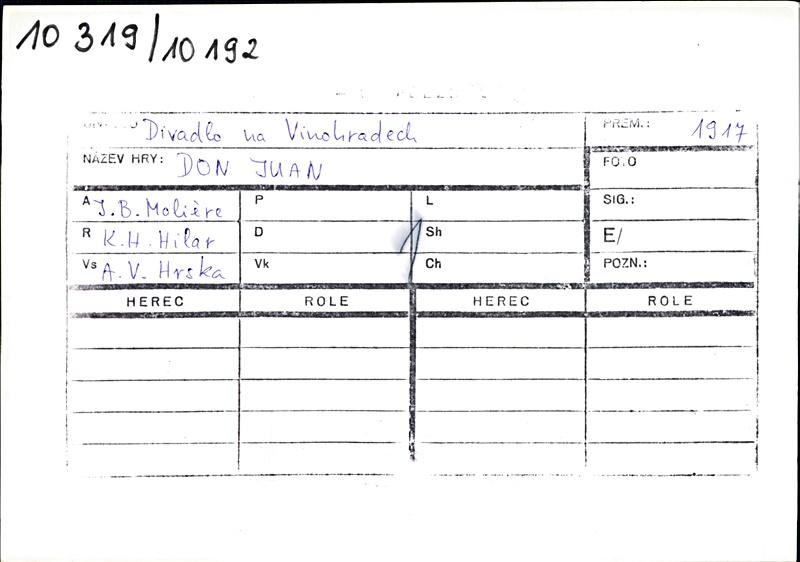 10 319/10 192
Divadlo na Vinohradech PREM.: 1917
NÁZEV HRY: DON JUAN FOTO
A J.B. Molière P L SIG.:
R K.H. Hilar D Sh E/
Vs A.V. Hrska Vk Ch POZN.:
HEREC ROLE HEREC ROLE